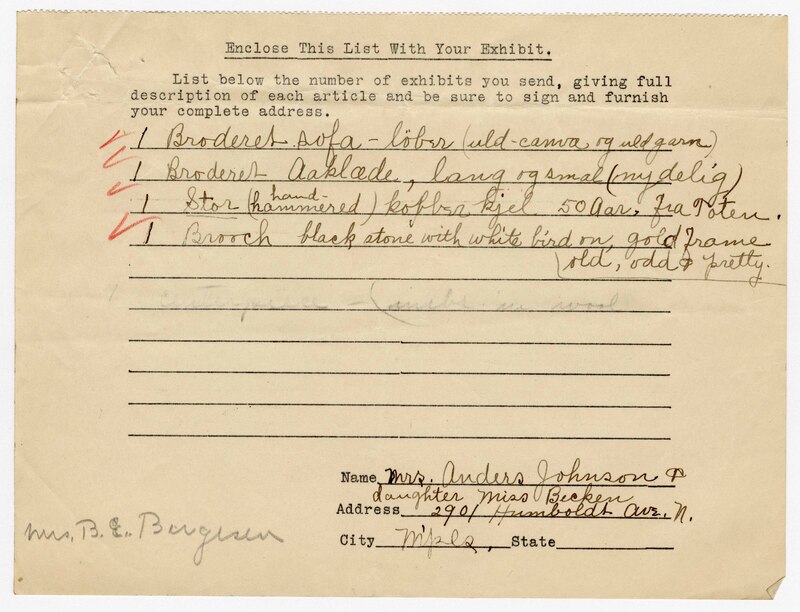 Enclose This List With Your Exhibit.
List below the number of exhibits you send, giving full
description of each article and be sure to sign and furnish
your complete address.
1 Broderet sofa - löber (uld-canva og uldgarn)
1 Broderet Aaklæde, lang og smal (nydelig)
hand-
1 Stor (hammered) kobber kjel 50 Aar. fra Toten.
1 Brooch black stone with white bird on, gold frame
(old, odd & pretty.
in wool
Name Mrs. Anders Johnson &
daughter Miss Becken
Address 2901 Humboldt Ave. N.
Mrs. B. E. Bergesen
City Mpls, State